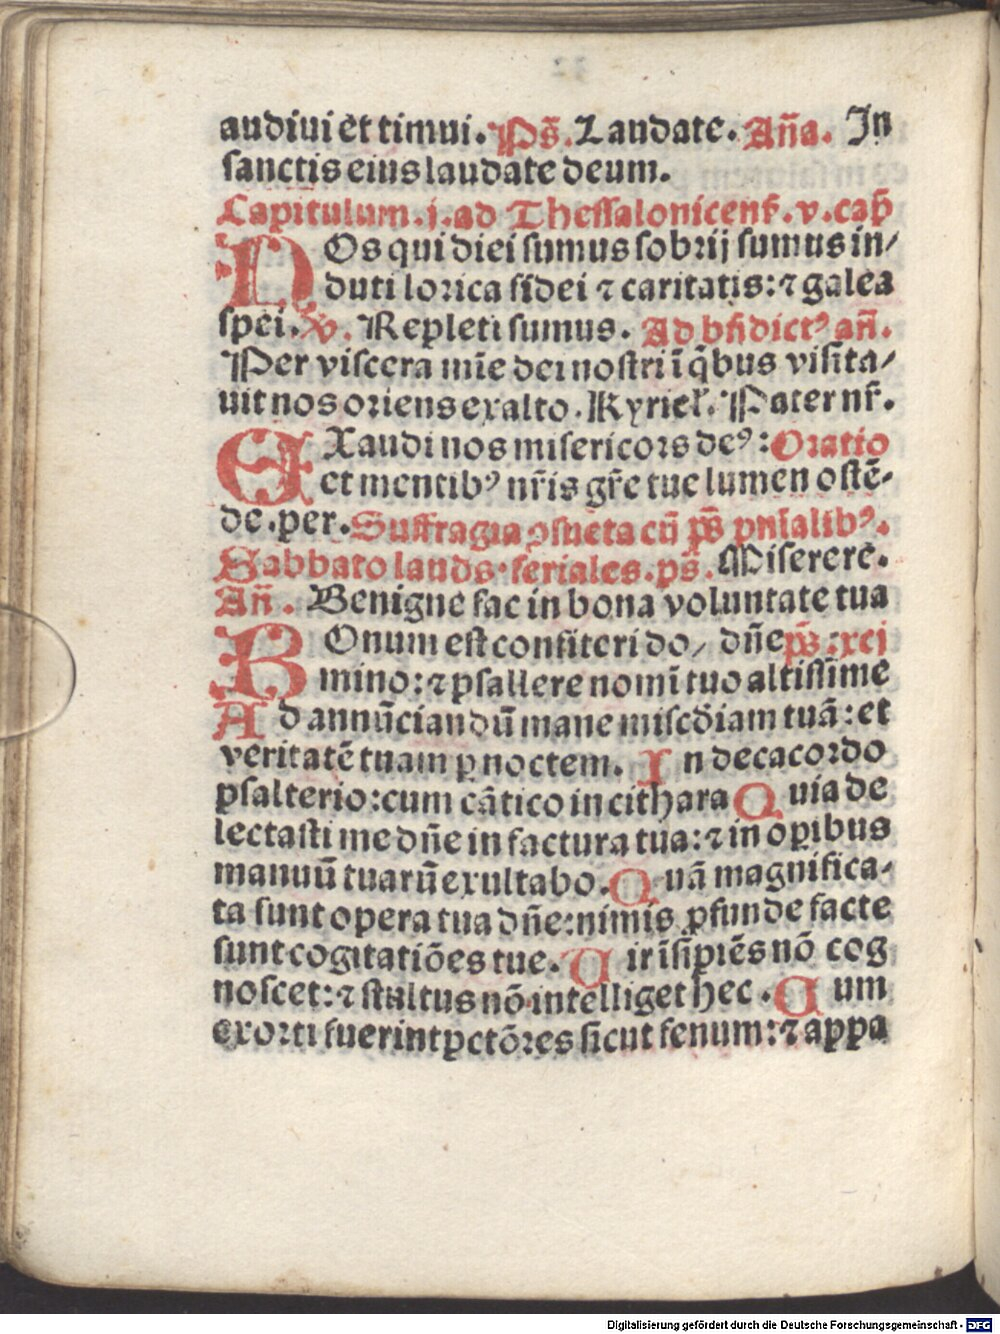 audiui et timui. Ps̄. Laudate. Aña. In
sanctis eius laudate deum.
Capitulum. j. ad Thessalonicens̄. v. cap̄
NOs qui diei sumus sobrij sumus in/
duti lorica fidei ⁊ caritatis: ⁊ galea
spei. ꝟ. Repleti sumus. Ad bn̄dictꝰ an̄.
Per viscera mīe dei nostri ī q̇bus visīta/
uit nos oriens ex alto. Kyriel̄. Pater nr̄.
EXaudi nos misericors deꝰ: Oratio
et mentibꝰ nr̄is gr̄e tue lumen ostē-
de. per. Suffragia ꝯsueta cū ps̄ pn̄ialibꝰ.
Sabbato laudꝭ feriales. ps̄. Miserere.
An̄. Benigne fac in bona voluntate tua
BOnum est confiteri do/ dn̄e ps̄. xcj
mino: ⁊ psallere nomī tuo altissime
Ad annūciandū mane misc̄diam tuā: et
veritatē tuam ꝑ noctem. In decacordo
psalterio: cum cātico in cithara Quia de
lectasti me dn̄e in factura tua: ⁊ in oꝑibus
manuū tuarū exultabo. Quā magnifica-
ta sunt opera tua dn̄e: nimis ꝓfunde facte
sunt cogitatiōes tue. Uir īsipiēs nō cog
noscet: ⁊ stultus nō intelliget hec. Cum
exorti fuerint pctōres sicut fenum: ⁊ appa
Digitalisierung gefördert durch die Deutsche Forschungsgemeinschaft - DFG